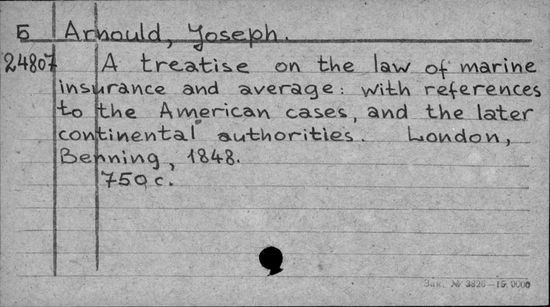 Б Arnould, Joseph.
24807 A treatise on the law of marine
insurance and average: with references
to the American cases, and the later
continental authorities. London,
Benning, 1848.
750 c.
Зак. № 3826—15.0000